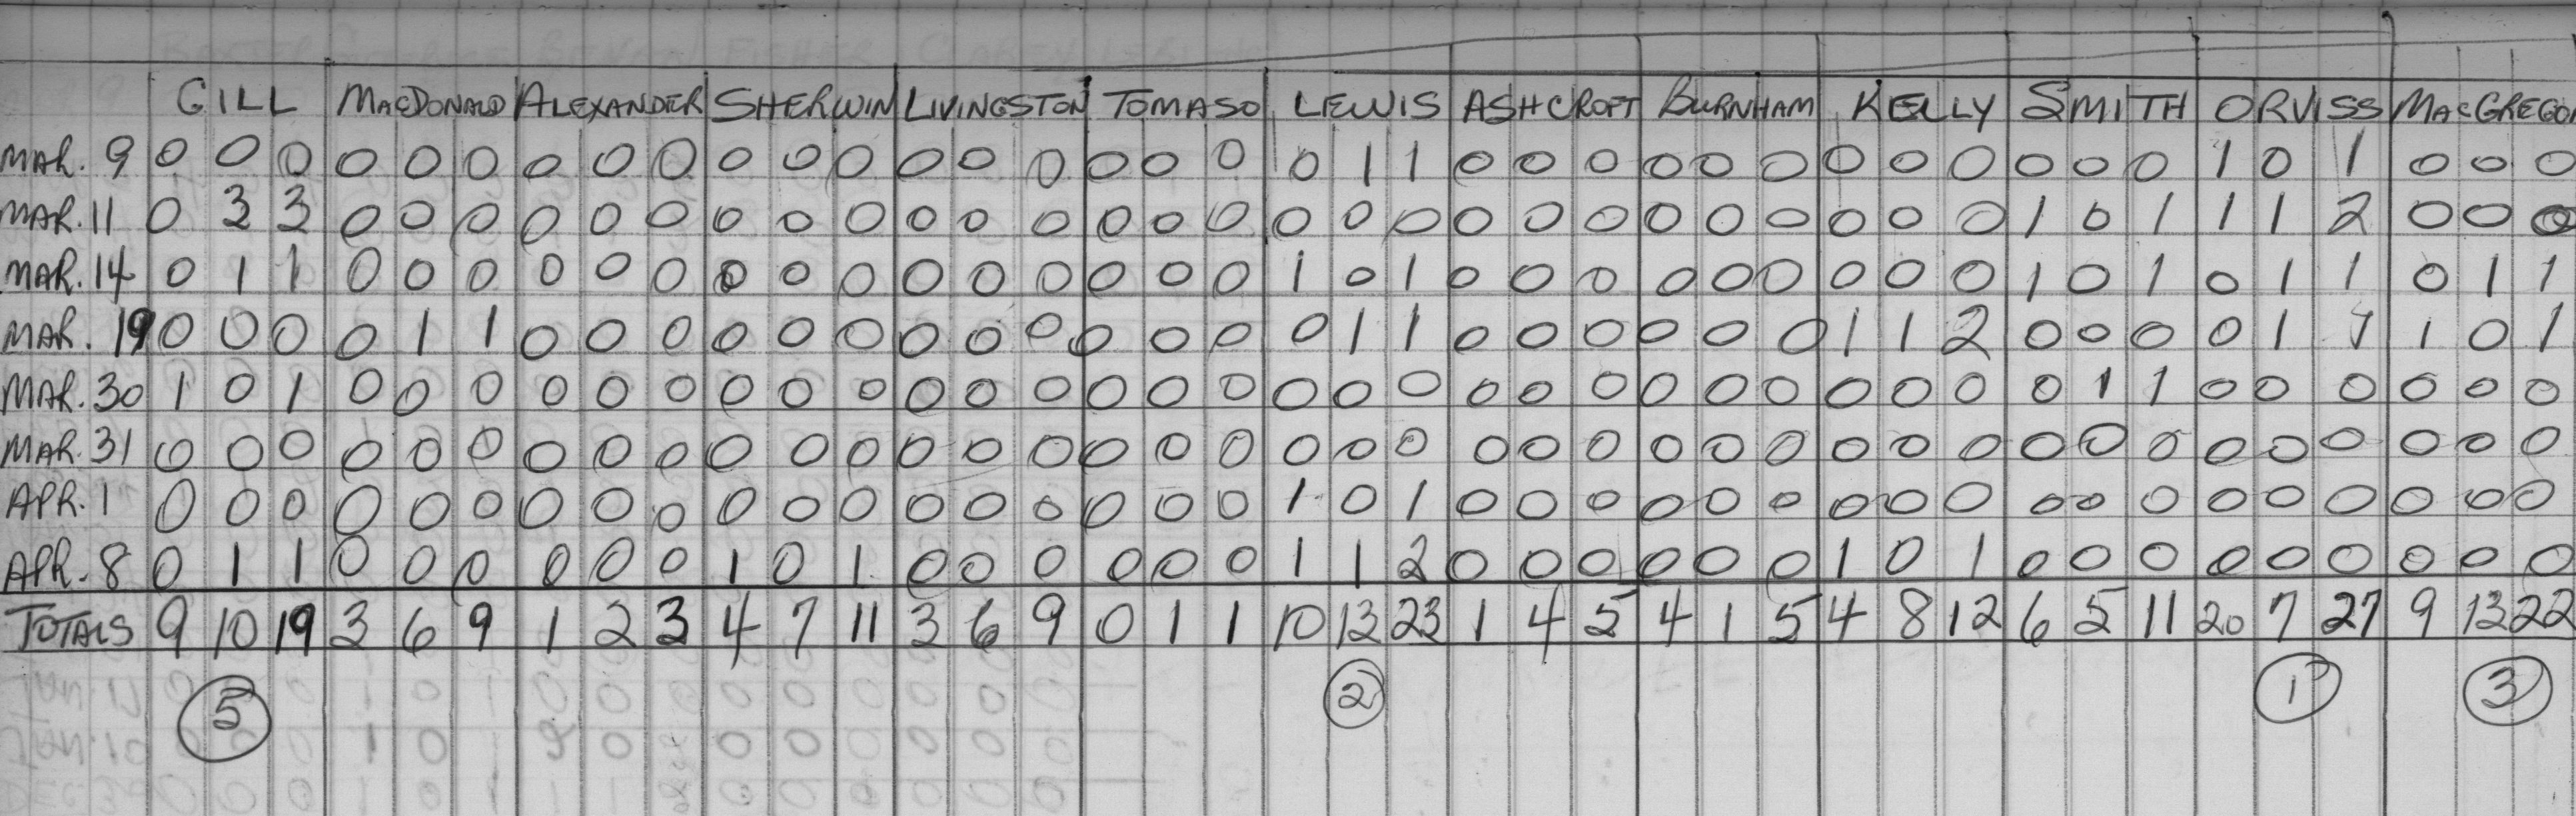 GILL MACDONALD ALEXANDER SHERWIN LIVINGSTON TOMASO LEWIS ASHCROFT BURNHAM KELLY SMITH ORVISS MACGREGOR
MAR. 9 0 0 0 0 0 0 0 0 0 0 0 0 0 0 0 0 0 0 0 1 1 0 0 0 0 0 0 0 0 0 0 0 0 1 0 1 0 0 0
MAR. 11 0 3 3 0 0 0 0 0 0 0 0 0 0 0 0 0 0 0 0 0 0 0 0 0 0 0 0 0 0 0 1 0 1 1 1 2 0 0 0
MAR. 14 0 1 1 0 0 0 0 0 0 0 0 0 0 0 0 0 0 0 1 0 1 0 0 0 0 0 0 0 0 0 1 0 1 0 1 1 0 1 1
MAR. 19 0 0 0 0 1 1 0 0 0 0 0 0 0 0 0 0 0 0 0 1 1 0 0 0 0 0 0 1 1 2 0 0 0 0 1 1 1 0 1
MAR. 30 1 0 1 0 0 0 0 0 0 0 0 0 0 0 0 0 0 0 0 0 0 0 0 0 0 0 0 0 0 0 0 1 1 0 0 0 0 0 0
MAR. 31 0 0 0 0 0 0 0 0 0 0 0 0 0 0 0 0 0 0 0 0 0 0 0 0 0 0 0 0 0 0 0 0 0 0 0 0 0 0 0
APR. 1 0 0 0 0 0 0 0 0 0 0 0 0 0 0 0 0 0 0 1 0 1 0 0 0 0 0 0 0 0 0 0 0 0 0 0 0 0 0 0
APR. 8 0 1 1 0 0 0 0 0 0 1 0 1 0 0 0 0 0 0 1 1 2 0 0 0 0 0 0 1 0 1 0 0 0 0 0 0 0 0 0
TOTALS 9 10 19 3 6 9 1 2 3 4 7 11 3 6 9 0 1 1 10 13 23 1 4 5 4 1 5 4 8 12 6 5 11 20 7 27 9 13 22
5 2 1 3